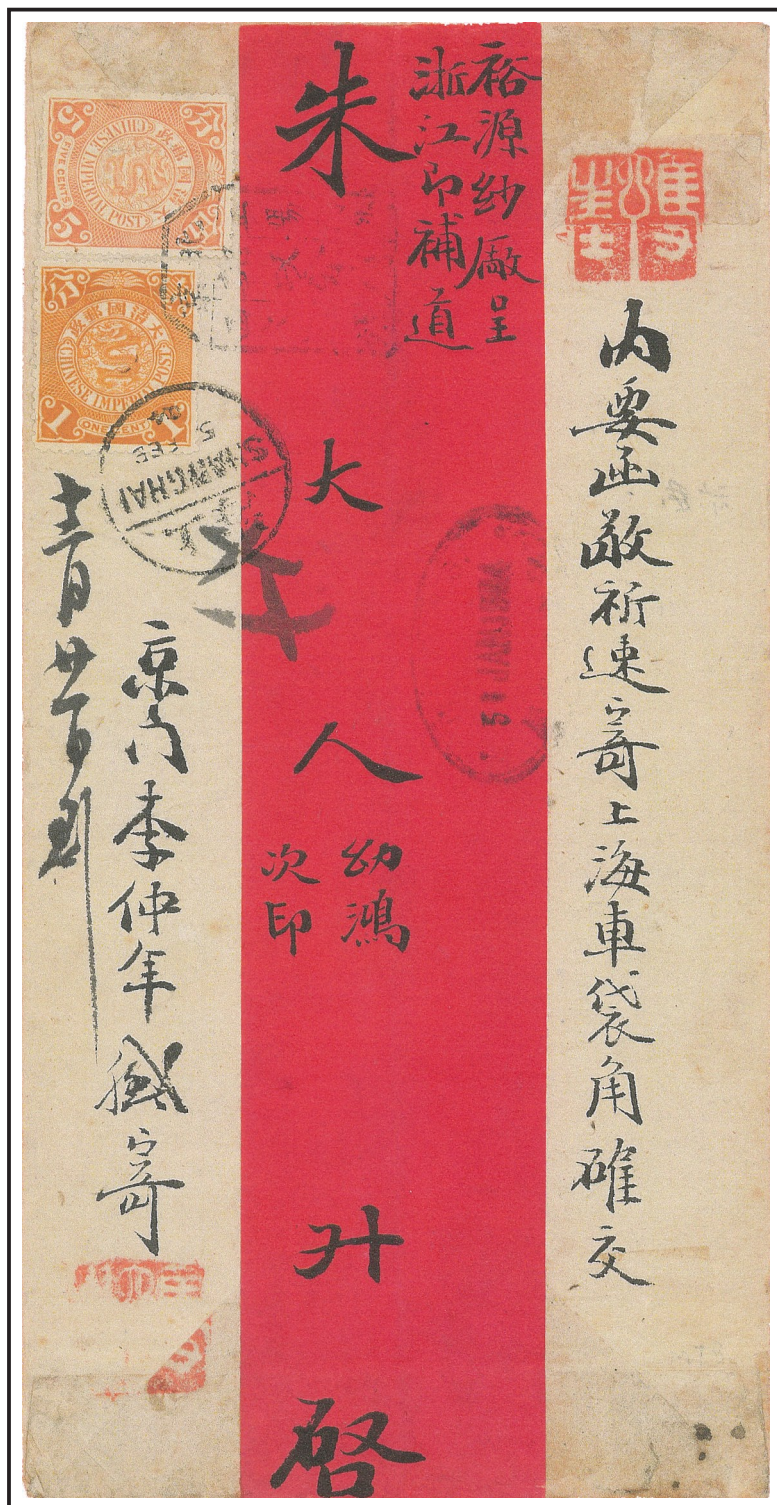 内要函敬祈速寄上海車袋角確交
裕源紗廠呈
浙江即補道
朱大人升啓
幼鴻
次印
京門李仲年緘寄
十二月廿
分 5
大清國郵政
CHINESE IMPERIAL POST
FIVE CENTS
5
分
大清國郵政
CHINESE IMPERIAL POST
1 ONE CENT 1
SHANGHAI
5 FEB